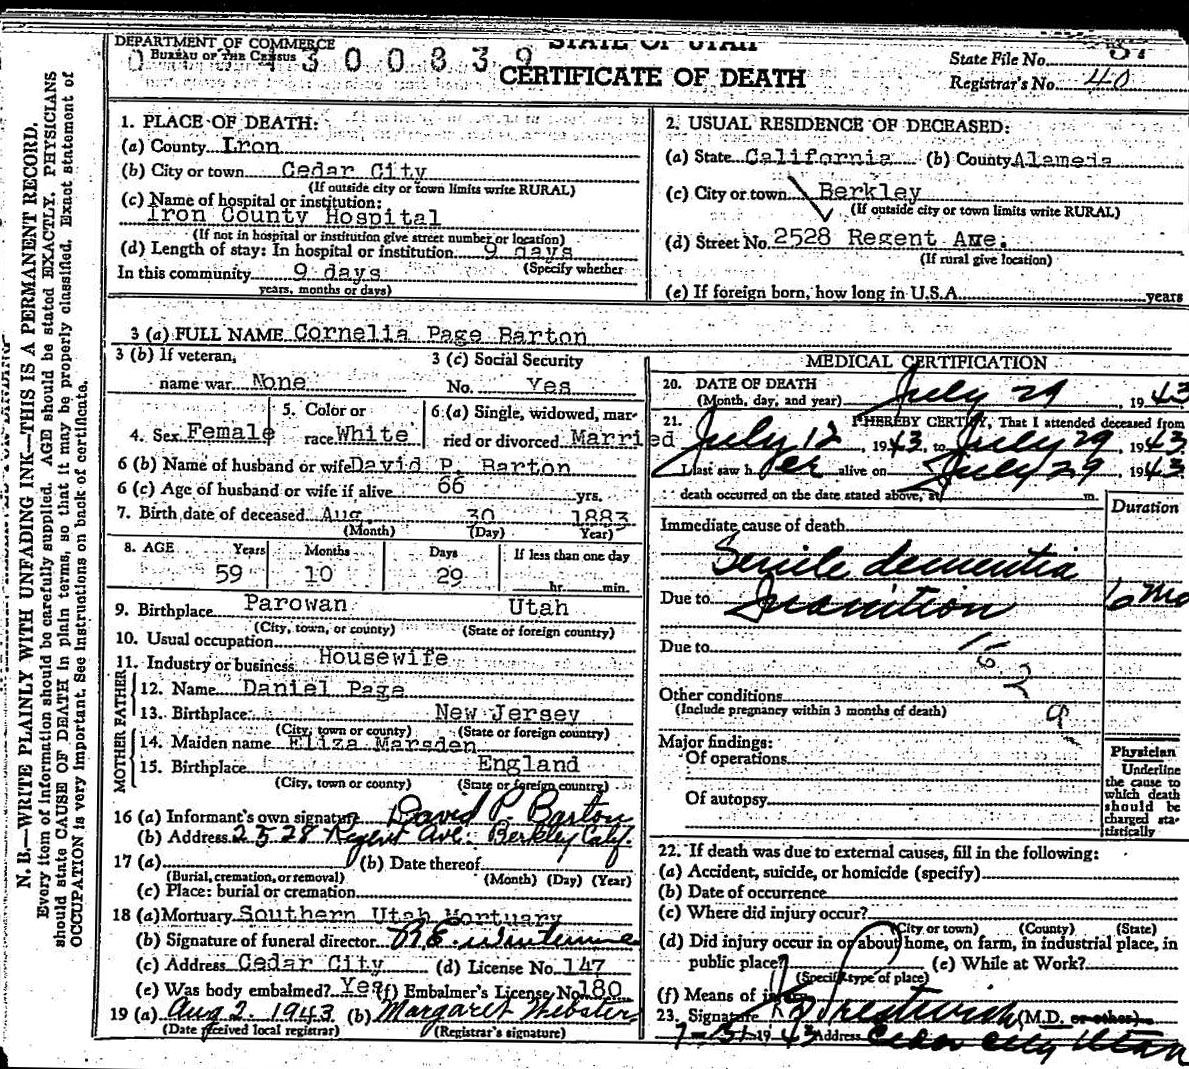 DEPARTMENT OF COMMERCE
BUREAU OF THE CENSUS
300839
STATE OF UTAH
CERTIFICATE OF DEATH
State File No.
Registrar's No. 40
N. B.—WRITE PLAINLY WITH UNFADING INK—THIS IS A PERMANENT RECORD.
Every item of information should be carefully supplied. AGE should be stated EXACTLY. PHYSICIANS
should state CAUSE OF DEATH in plain terms, so that it may be properly classified. Exact statement of
OCCUPATION is very important. See instructions on back of certificate.
1. PLACE OF DEATH:
(a) County Iron
(b) City or town Cedar City
(If outside city or town limits write RURAL)
(c) Name of hospital or institution:
Iron County Hospital
(If not in hospital or institution give street number or location)
(d) Length of stay: In hospital or institution 9 days
(Specify whether
In this community 9 days
years, months or days)
2. USUAL RESIDENCE OF DECEASED:
(a) State California (b) County Alameda
(c) City or town Berkley
(If outside city or town limits write RURAL)
(d) Street No. 2528 Regent Ave.
(If rural give location)
(e) If foreign born, how long in U.S.A. years
3 (a) FULL NAME Cornelia Page Barton
3 (b) If veteran, 3 (c) Social Security
name war None No. Yes
4. Sex Female 5. Color or race White 6. (a) Single, widowed, married or divorced Married
6 (b) Name of husband or wife David P. Barton
6 (c) Age of husband or wife if alive 66 yrs.
7. Birth date of deceased Aug. 30 1883
(Month) (Day) Year)
8. AGE Years Months Days If less than one day
59 10 29 hr. min.
9. Birthplace Parowan Utah
(City, town, or county) (State or foreign country)
10. Usual occupation
11. Industry or business Housewife
FATHER
12. Name Daniel Page
13. Birthplace New Jersey
(City, town or county) (State or foreign country)
MOTHER
14. Maiden name Eliza Marsden
15. Birthplace England
(City, town or county) (State or foreign country)
16 (a) Informant's own signature David P. Barton
(b) Address 2528 Regent Ave. Berkley Calif.
17 (a) (b) Date thereof
(Burial, cremation, or removal) (Month) (Day) (Year)
(c) Place: burial or cremation
18 (a) Mortuary Southern Utah Mortuary
(b) Signature of funeral director R.E.
(c) Address Cedar City (d) License No. 147
(e) Was body embalmed? Yes (f) Embalmer's License No. 180
19 (a) Aug 2. 1943 (b) Margaret Webster
(Date received local registrar) (Registrar's signature)
MEDICAL CERTIFICATION
20. DATE OF DEATH
(Month, day, and year) July 29, 1943
21. I HEREBY CERTIFY, That I attended deceased from
July 12, 1943, to July 29, 1943
I last saw her alive on July 29 1943
death occurred on the date stated above, at m.
Duration
Immediate cause of death
Senile dementia
Due to Inanition 6 mo
Due to
162
Other conditions
(Include pregnancy within 3 months of death)
9
Major findings:
Of operations
Of autopsy
Physician
Underline
the cause to
which death
should be
charged sta-
tistically
22. If death was due to external causes, fill in the following:
(a) Accident, suicide, or homicide (specify)
(b) Date of occurrence
(c) Where did injury occur?
(City or town) (County) (State)
(d) Did injury occur in or about home, on farm, in industrial place, in
public place? (e) While at Work?
(Specify type of place)
(f) Means of injury
23. Signature Prestwich (M.D. or other)
7-31-1943 Address Cedar City Utah